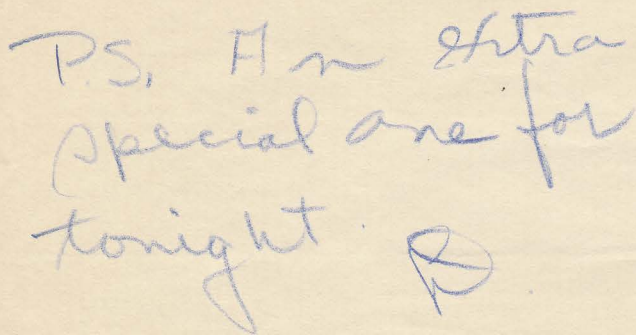 P.S. An extra
special one for
tonight. D